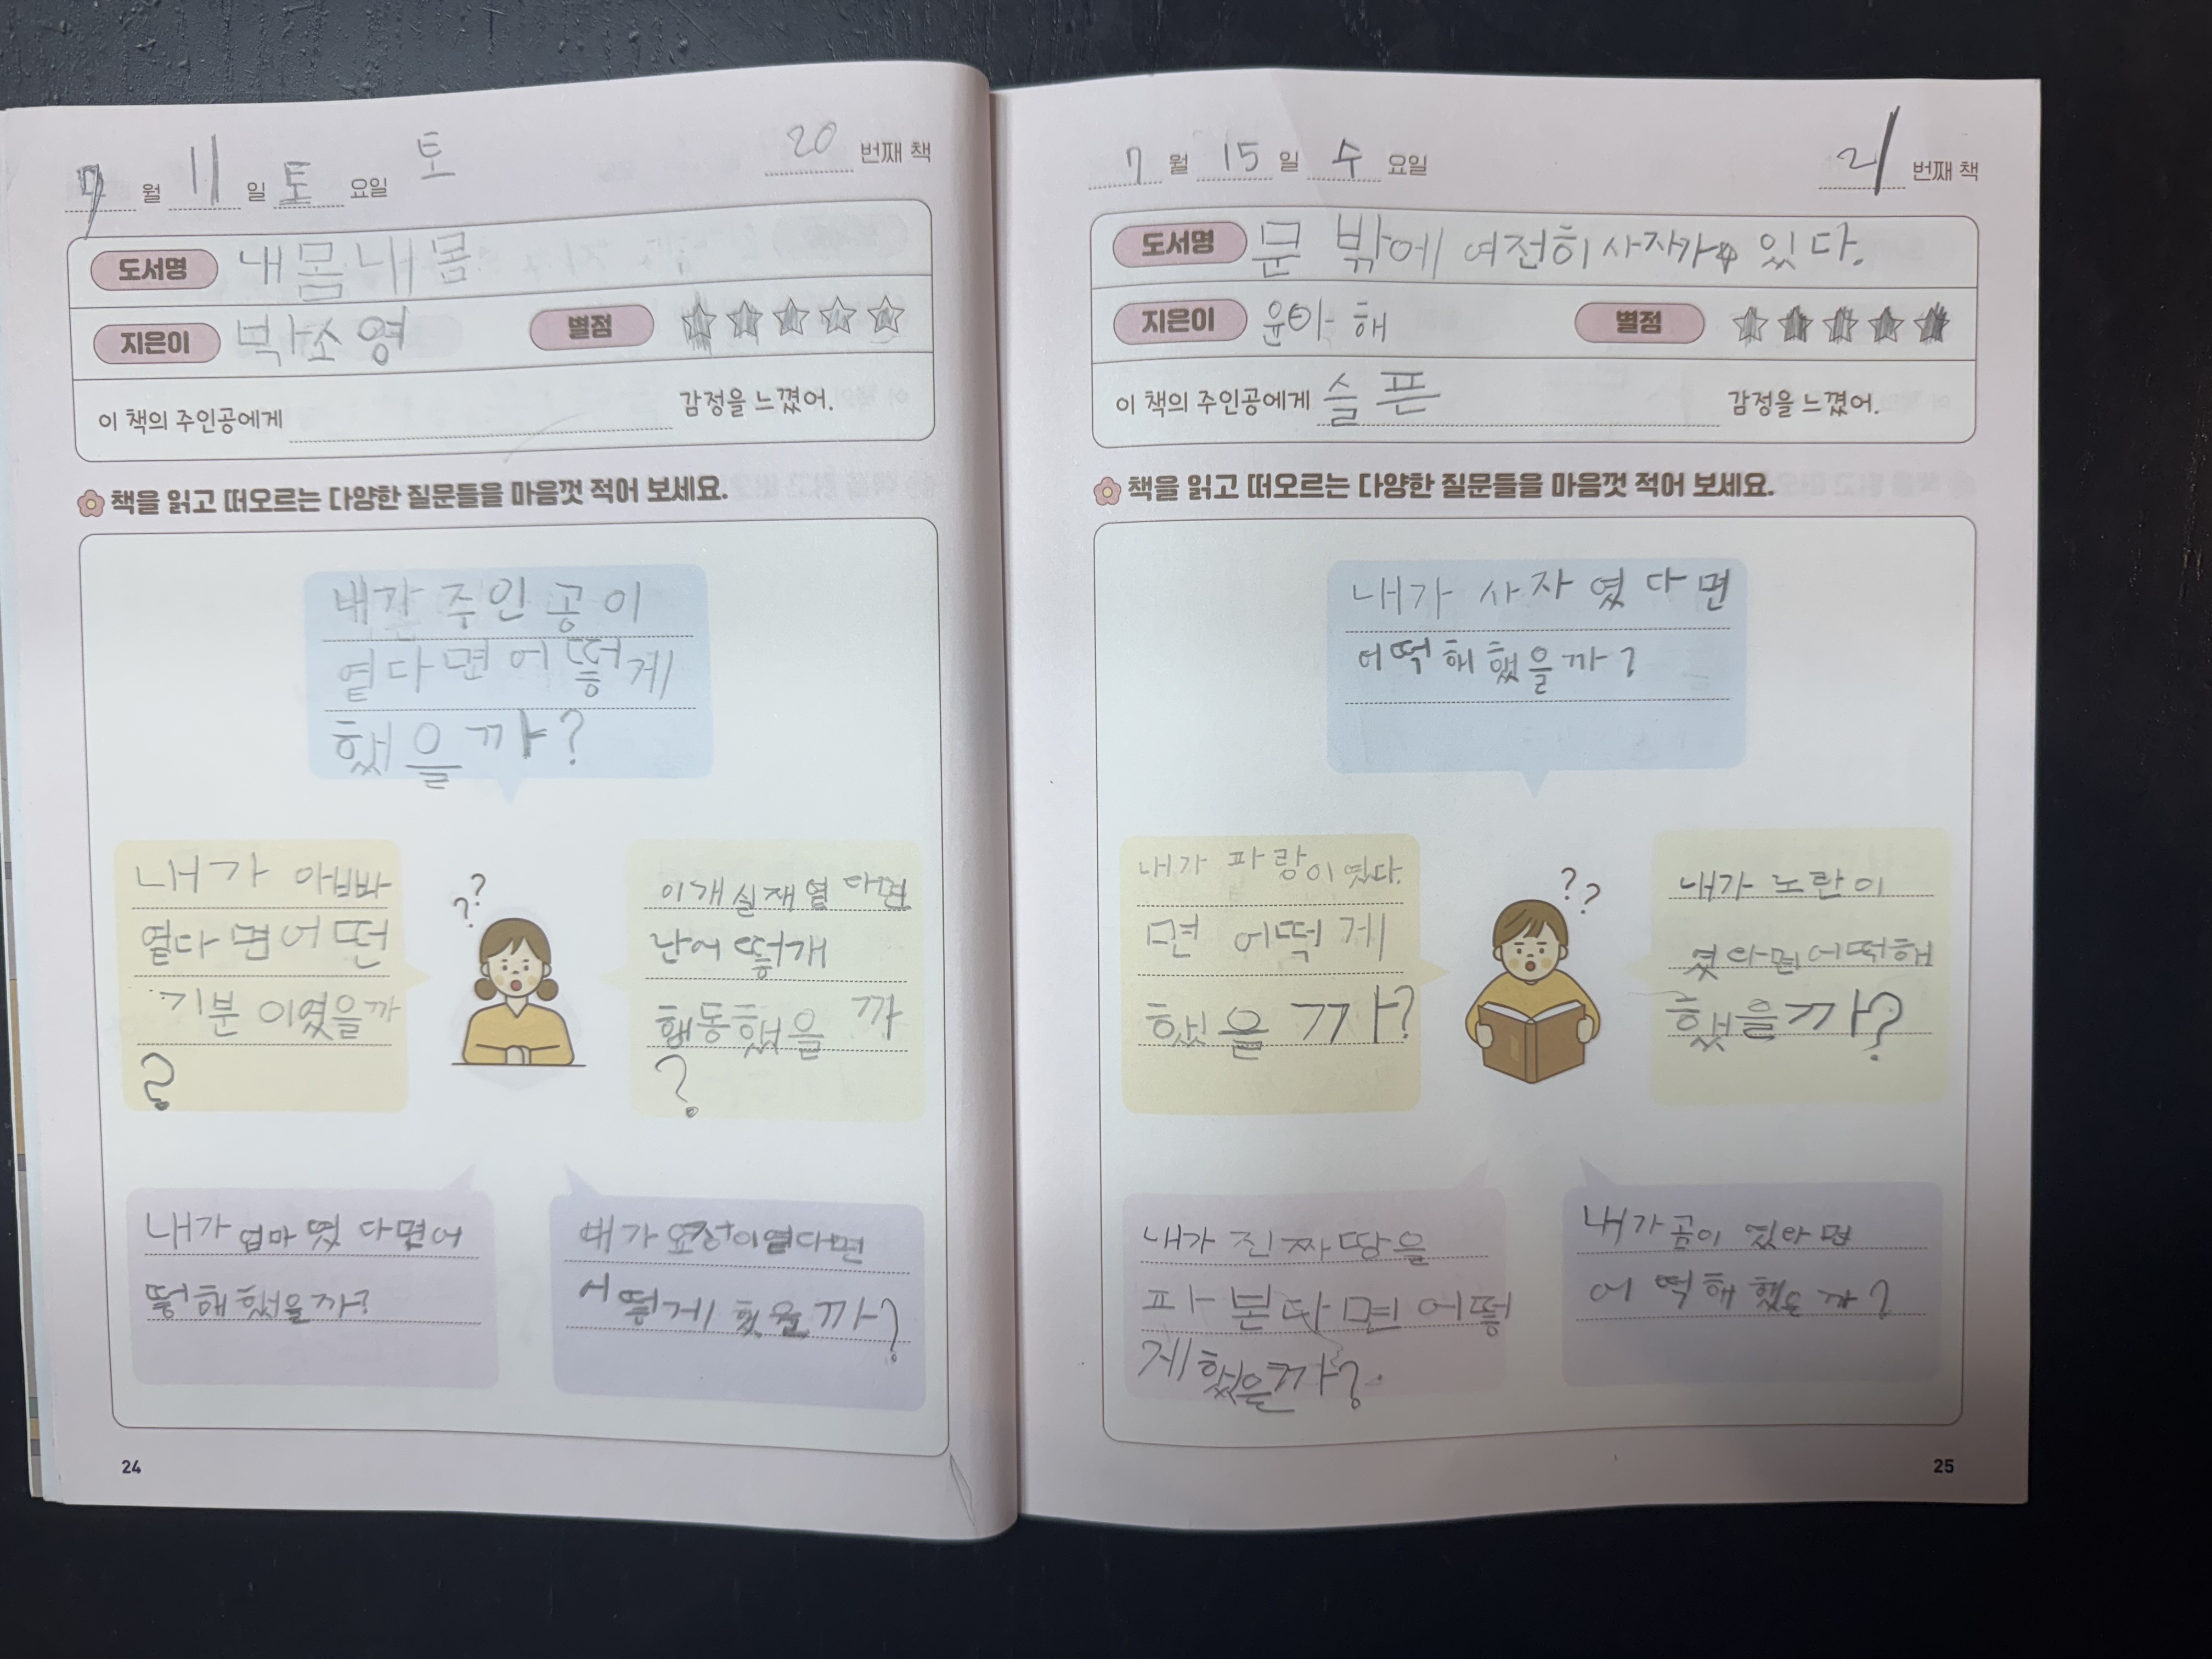 7 월 11 일 토 요일 토
20 번째 책
도서명 내몸내몸
지은이 박소영 별점
이 책의 주인공에게 감정을 느꼈어.
책을 읽고 떠오르는 다양한 질문들을 마음껏 적어 보세요.
내가 주인공이
옅다면어떻게
했을까?
내가 아빠
옅다면어떤
기분이였을까
?
??
이개실재열다면
난어떻개
행동했을까
?
내가 엄마였다면어
떻해했을까?
내가 요정이옅다면
어떻게 했을까?
24
7 월 15 일 수 요일
21 번째 책
도서명 문 밖에 여전히 사자가 있다.
지은이 윤아해 별점
이 책의 주인공에게 슬픈 감정을 느꼈어.
책을 읽고 떠오르는 다양한 질문들을 마음껏 적어 보세요.
내가 사자였다면
어떡해했을까?
내가 파랑이였다.
면 어떡게
했을까?
??
내가 노란이
였다면어떡해
했을까?
내가 진짜땅을
파본다면 어떻
게했을까?
내가곰이 였다면
어떡해했을까?
25